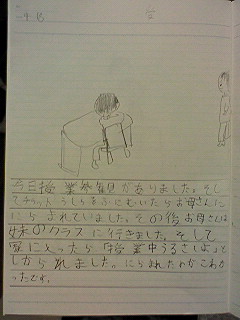 今日授業参観がありました。そし
てチラッとうしろをふにむいたらお母さんに
にらまれていました。その後お母さんは
妹のクラスに行きました。そして
家にとったら「授業中うるさいよ」と
しかられました。にらまれたのがこわか
ったです。